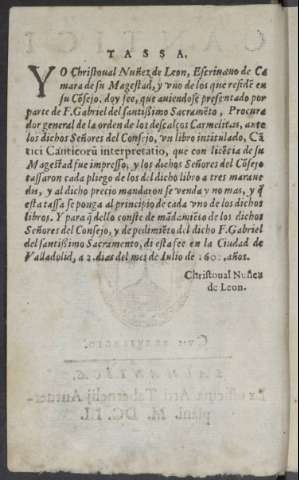 TASSA.
YO Christoual Nuñez de Leon, Escriuano de Ca
mara de su Magestad, y vno de los que residẽ en
su Cõsejo, doy fee, que auiendose presentado por
parte de F. Gabriel del santissimo Sacramẽto, Procura
dor general de la orden de los descalços Carmelitas, ante
los dichos Señores del Consejo, vn libro intitulado, Cã
tici Canticorũ interpretatio, que con licẽcia de su
Magestad fue impresso, y los dichos Señores del Cõsejo
tassaron cada pliego de los del dicho libro a tres maraue
dis, y al dicho precio mandaron se venda y no mas, y q̃
esta tassa se ponga al principio de cada vno de los dichos
libros. Y para q̃ dello conste de mãdamiẽto de los dichos
Señores del Consejo, y de pedimiẽto del dicho F. Gabriel
del santissimo Sacramento, di esta fee en la Ciudad de
Valladolid, a 2. dias del mes de Iulio de 160 . años.
Christoual Nuñez
de Leon.